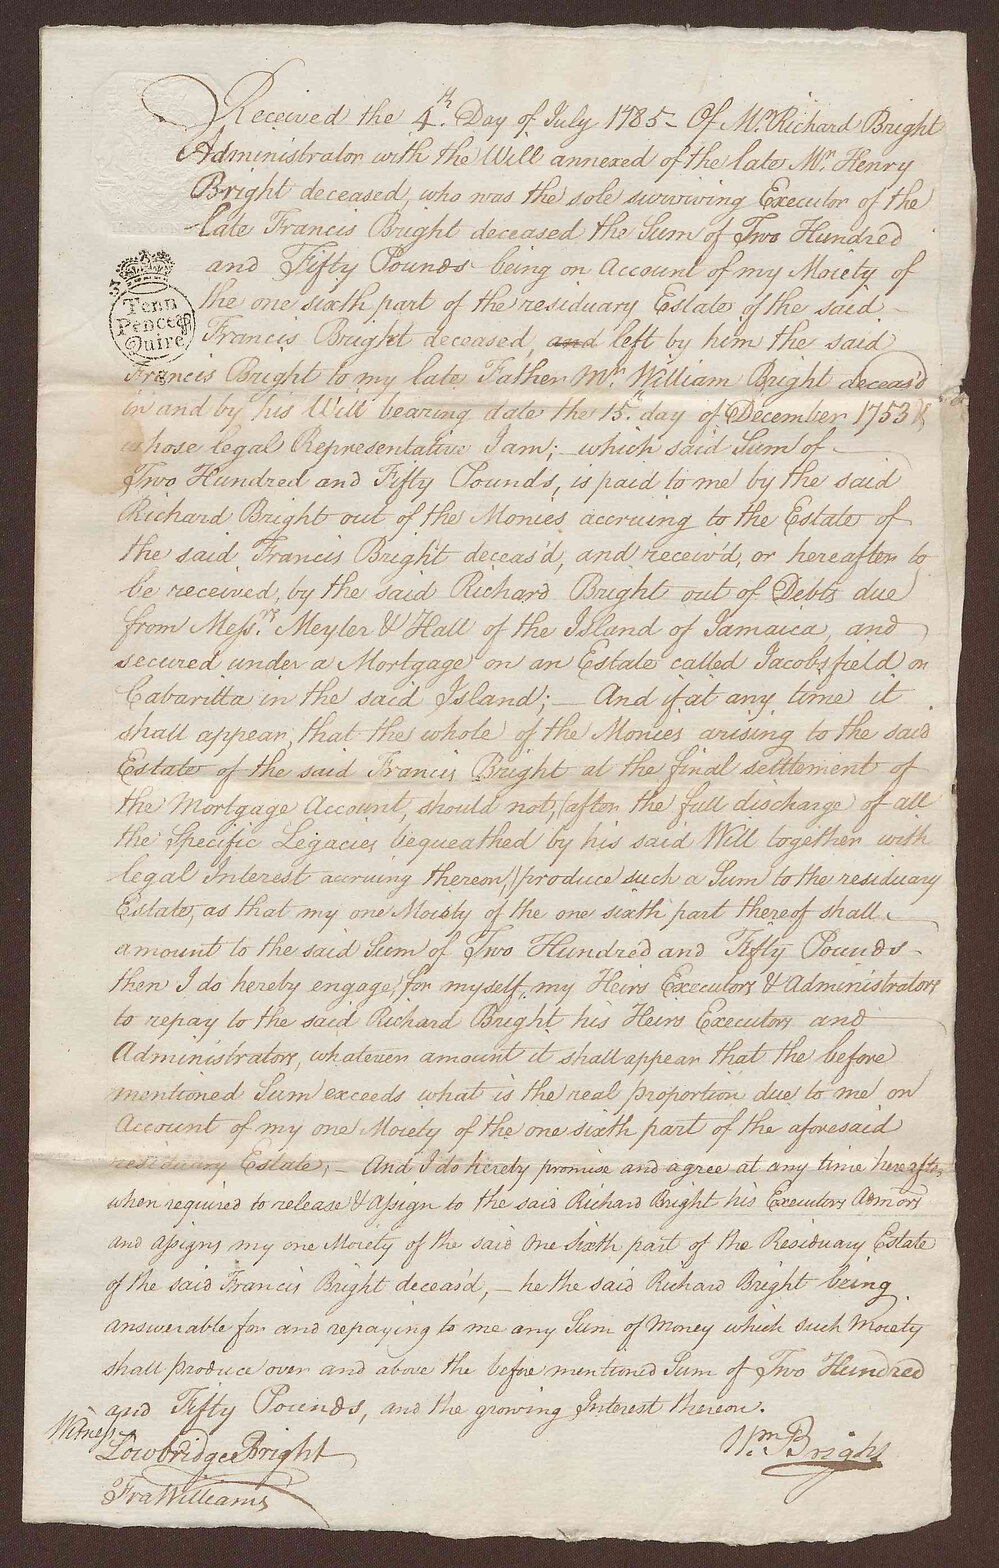 Received the 4th. Day of July 1785 - Of Mr. Richard Bright
Administrator with the Will annexed of the late Mr Henry
Bright deceased, who was the sole surviving Executor of the
late Francis Bright deceased the Sum of Two Hundred
and Fifty Pounds being on Account of my Moiety of
the one sixth part of the residuary Estate of the said
Tenn
Pence P
Quire
Francis Bright deceased, and left by him the said
Francis Bright to my late Father Mr. William Bright deceas'd
in and by his Will bearing date the 15th. day of December 1753
whose legal Representative I am; - which said Sum of
Two Hundred and Fifty Pounds, is paid to me by the said
Richard Bright out of the Monies accruing to the Estate of
the said Francis Bright deceas'd, and receiv'd, or hereafter to
be received, by the said Richard Bright out of Debts due
from Messrs. Meyler & Hall of the Island of Jamaica, and
secured under a Mortgage on an Estate called Jacobsfield on
Cabaritta in the said Island; - And if at any time it
shall appear, that the whole of the Monies arising to the said
Estate of the said Francis Bright at the final settlement of
the Mortgage Account, should not, (after the full discharge of all
the Specific Legacies bequeathed by his said Will together with
legal Interest accruing thereon,) produce such a Sum to the residuary
Estate, as that my one Moiety of the one sixth part thereof shall
amount to the said Sum of Two Hundred and Fifty Pounds -
then I do hereby engage, for myself, my Heirs Executors & Administrators
to repay to the said Richard Bright his Heirs Executors and
Administrators, whatever amount it shall appear that the before
mentioned Sum exceeds what is the real proportion due to me on
Account of my one Moiety of the one sixth part of the aforesaid
residuary Estate; - And I do hereby promise and agree at any time hereafter,
when required to release & assign to the said Richard Bright his Executors Admors
and assigns my one Moiety of the said One Sixth part of the Residuary Estate
of the said Francis Bright deceas'd, - he the said Richard Bright being
answerable for and repaying to me any Sum of Money which such Moiety
shall produce over and above the before mentioned Sum of Two Hundred
and Fifty Pounds, and the growing Interest thereon.
Witness
Lowbridge Bright
Wm. Bright
Fra Williams